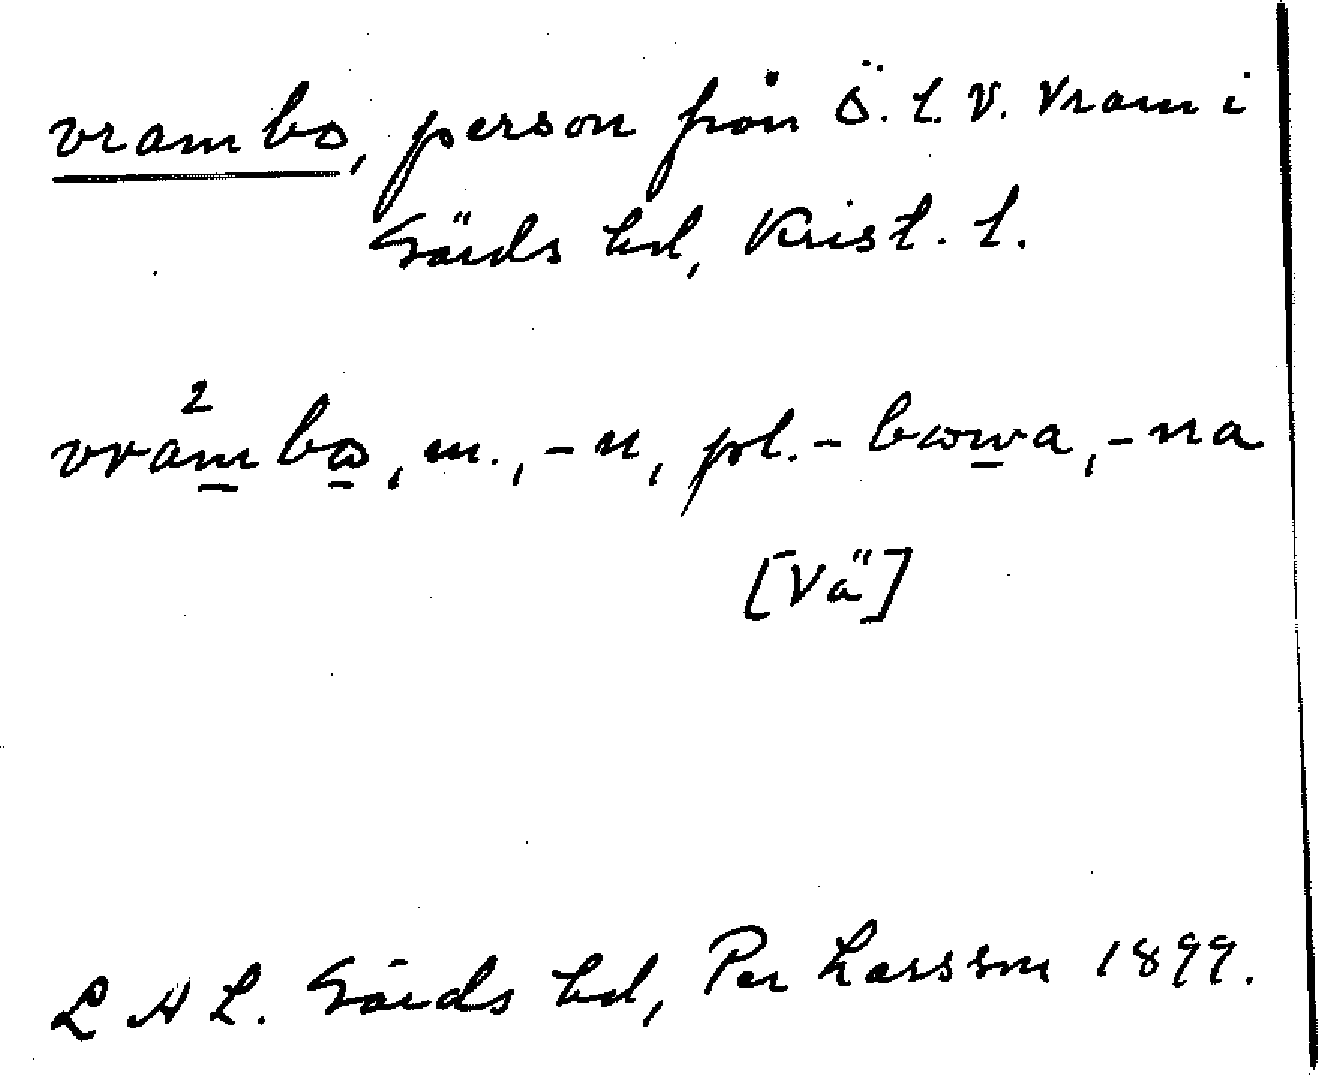 vrambo, person från Ö. l. V. Vram i
Gärds hd, Krist. l.
vram²bω, m., -n, pl. -bωwa, -na
[Vä]
LAL. Gärds hd, Per Larsson 1899.